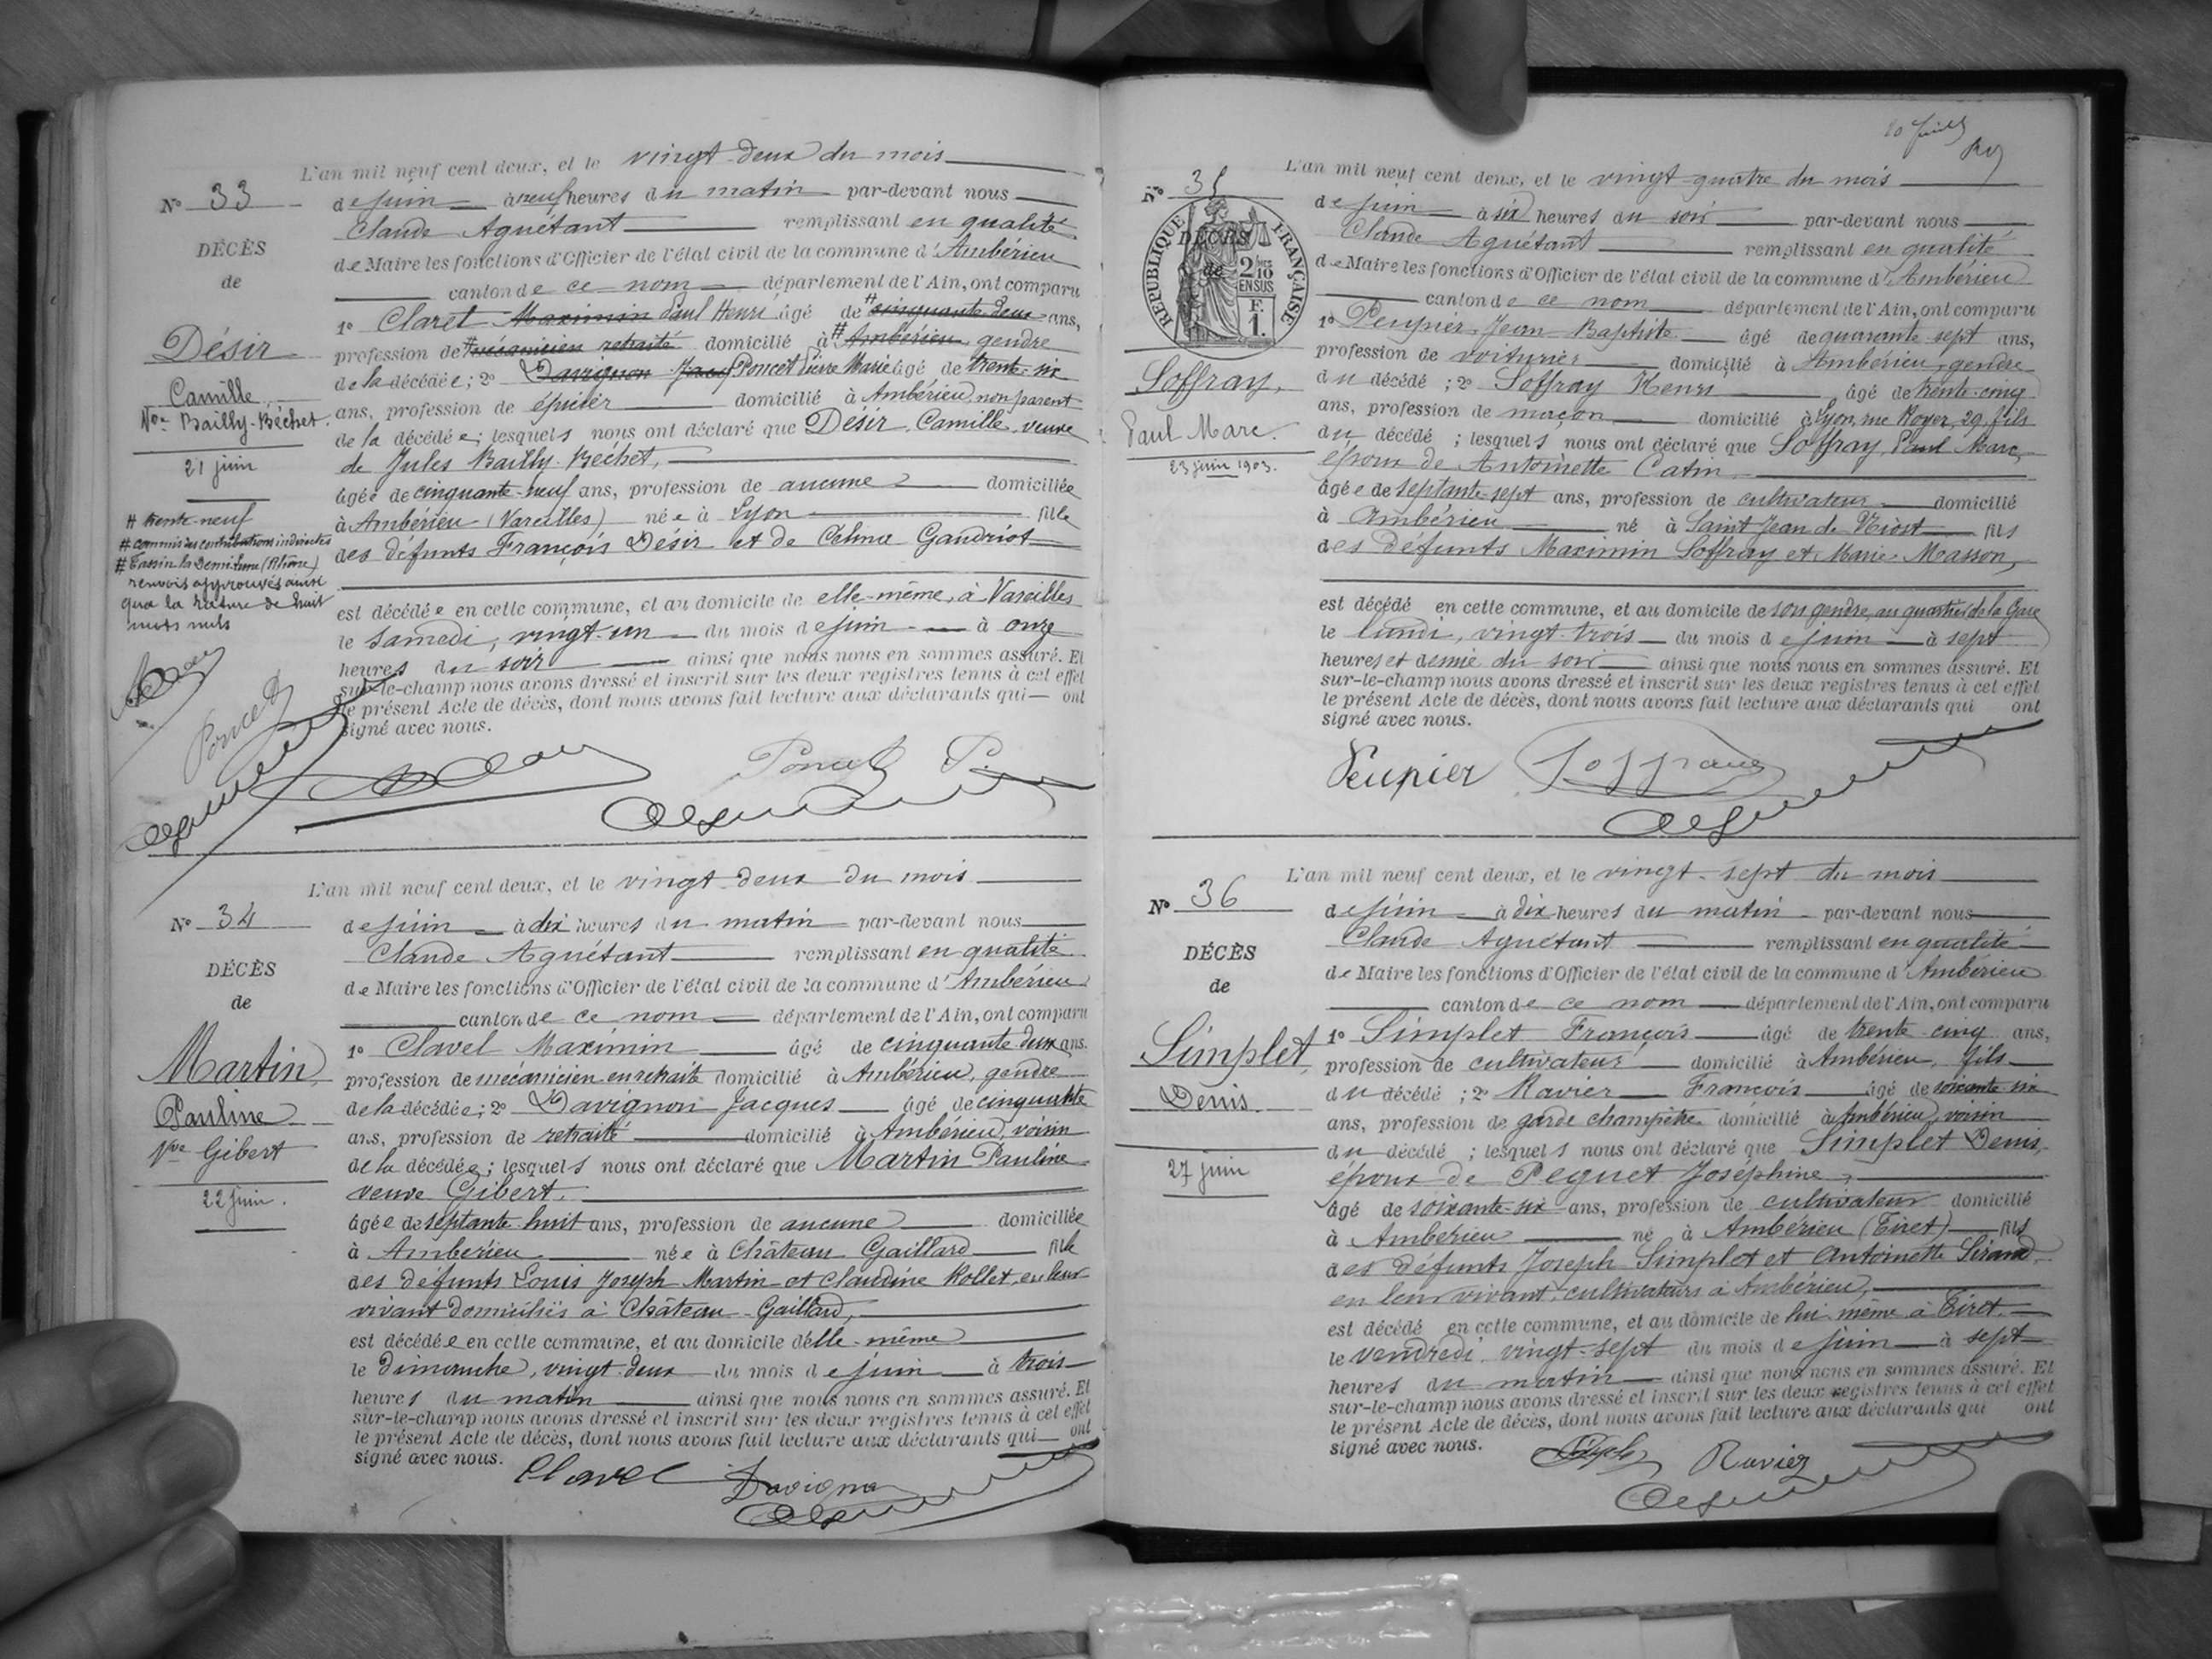 L'an mil neuf cent deux, et le vingt-deux du mois
N° 33
de juin à neuf heures du matin par-devant nous
Claude Aguétant remplissant en qualité
DÉCÈS
de Maire les fonctions d'Officier de l'état civil de la commune d'Ambérieu
de
canton de ce nom département de l'Ain, ont comparu
1° Claret Maximin Paul Henri âgé de # cinquante deux ans,
Désir
profession de # mécanicien retraité domicilié à # Ambérieu, gendre
de la décédée; 2° Davignon Jacq Poncet Pierre Marie âgé de trente-six
Camille
ans, profession de épicier domicilié à Ambérieu, non parent
Vve Bailly-Béchet.
de la décédée; lesquels nous ont déclaré que Désir, Camille, veuve
21 juin
de Jules Bailly-Béchet,
âgée de cinquante-neuf ans, profession de aucune domiciliée
# trente-neuf
à Ambérieu (Vareilles) née à Lyon fille
# commis des contributions indirectes
des défunts François Désir et de Celina Gaudriot
# Tassin la Demi-lune (Rhône)
renvois approuvés ainsi
que la rature de huit
mots nuls
est décédée en cette commune, et au domicile de elle-même, à Vareilles
le samedi, vingt-un du mois de juin à onze
heures du soir ainsi que nous nous en sommes assuré. Et
sur-le-champ nous avons dressé et inscrit sur les deux registres tenus à cet effet
le présent Acte de décès, dont nous avons fait lecture aux déclarants qui ont
signé avec nous.
Poncet
Poncet P.
L'an mil neuf cent deux, et le vingt-deux du mois
N° 34
de juin à dix heures du matin par-devant nous
Claude Aguétant remplissant en qualité
DÉCÈS
de Maire les fonctions d'Officier de l'état civil de la commune d'Ambérieu
de
canton de ce nom département de l'Ain, ont comparu
1° Clavel Maximin âgé de cinquante deux ans.
Martin
profession de mécanicien en retraite domicilié à Ambérieu, gendre
de la décédée; 2° Davignon Jacques âgé de cinquante
Pauline
ans, profession de retraité domicilié à Ambérieu, voisin
Vve Gibert
de la décédée; lesquels nous ont déclaré que Martin Pauline
22 juin.
veuve Gibert,
âgée de septante-huit ans, profession de aucune domiciliée
à Ambérieu née à Château-Gaillard fille
des défunts Louis Joseph Martin et Claudine Rollet, en leur
vivant domiciliés à Château-Gaillard,
est décédée en cette commune, et au domicile d'elle-même
le Dimanche, vingt-deux du mois de juin à trois
heures du matin ainsi que nous nous en sommes assuré. Et
sur-le-champ nous avons dressé et inscrit sur les deux registres tenus à cet effet
le présent Acte de décès, dont nous avons fait lecture aux déclarants qui ont
signé avec nous.
Clavel Davignon
10 Juill
L'an mil neuf cent deux, et le vingt-quatre du mois
N° 35
de juin à six heures du soir par-devant nous
Claude Aguétant remplissant en qualité
DÉCÈS
de
RÉPUBLIQUE FRANÇAISE
2/10 EN SUS
F. 1.
de Maire les fonctions d'Officier de l'état civil de la commune d'Ambérieu
canton de ce nom département de l'Ain, ont comparu
1° Peupier Jean-Baptiste âgé de quarante-sept ans,
profession de voiturier domicilié à Ambérieu, gendre
Soffray,
du décédé; 2° Soffray Henri âgé de trente-cinq
ans, profession de maçon domicilié à Lyon, rue Royer, 29, fils
Paul Marc.
du décédé; lesquels nous ont déclaré que Soffray, Paul Marc,
23 juin 1903.
époux de Antoinette Catin
âgé de septante-sept ans, profession de cultivateur domicilié
à Ambérieu né à Saint Jean de fils
des défunts Maximin Soffray et Marie Masson,
est décédé en cette commune, et au domicile de son gendre, au quartier de la Gare
le lundi, vingt-trois du mois de juin à sept
heures et demie du soir ainsi que nous nous en sommes assuré. Et
sur-le-champ nous avons dressé et inscrit sur les deux registres tenus à cet effet
le présent Acte de décès, dont nous avons fait lecture aux déclarants qui ont
signé avec nous.
Peupier Soffray
L'an mil neuf cent deux, et le vingt-sept du mois
N° 36
de juin à dix heures du matin par-devant nous
Claude Aguétant remplissant en qualité
DÉCÈS
de Maire les fonctions d'Officier de l'état civil de la commune d'Ambérieu
de
canton de ce nom département de l'Ain, ont comparu
1° Simplet François âgé de trente-cinq ans,
Simplet,
profession de cultivateur domicilié à Ambérieu, fils
du décédé; 2° Ravier François âgé de soixante-six
Denis
ans, profession de garde champêtre domicilié à Ambérieu, voisin
du décédé; lesquels nous ont déclaré que Simplet Denis,
27 juin
époux de Peguet Joséphine,
âgé de soixante-six ans, profession de cultivateur domicilié
à Ambérieu né à Ambérieu (Tiret) fils
des défunts Joseph Simplet et Antoinette Sirand
en leur vivant, cultivateurs à Ambérieu,
est décédé en cette commune, et au domicile de lui-même à Tiret,
le vendredi vingt-sept du mois de juin à sept
heures du matin ainsi que nous nous en sommes assuré. Et
sur-le-champ nous avons dressé et inscrit sur les deux registres tenus à cet effet
le présent Acte de décès, dont nous avons fait lecture aux déclarants qui ont
signé avec nous.
Ravier